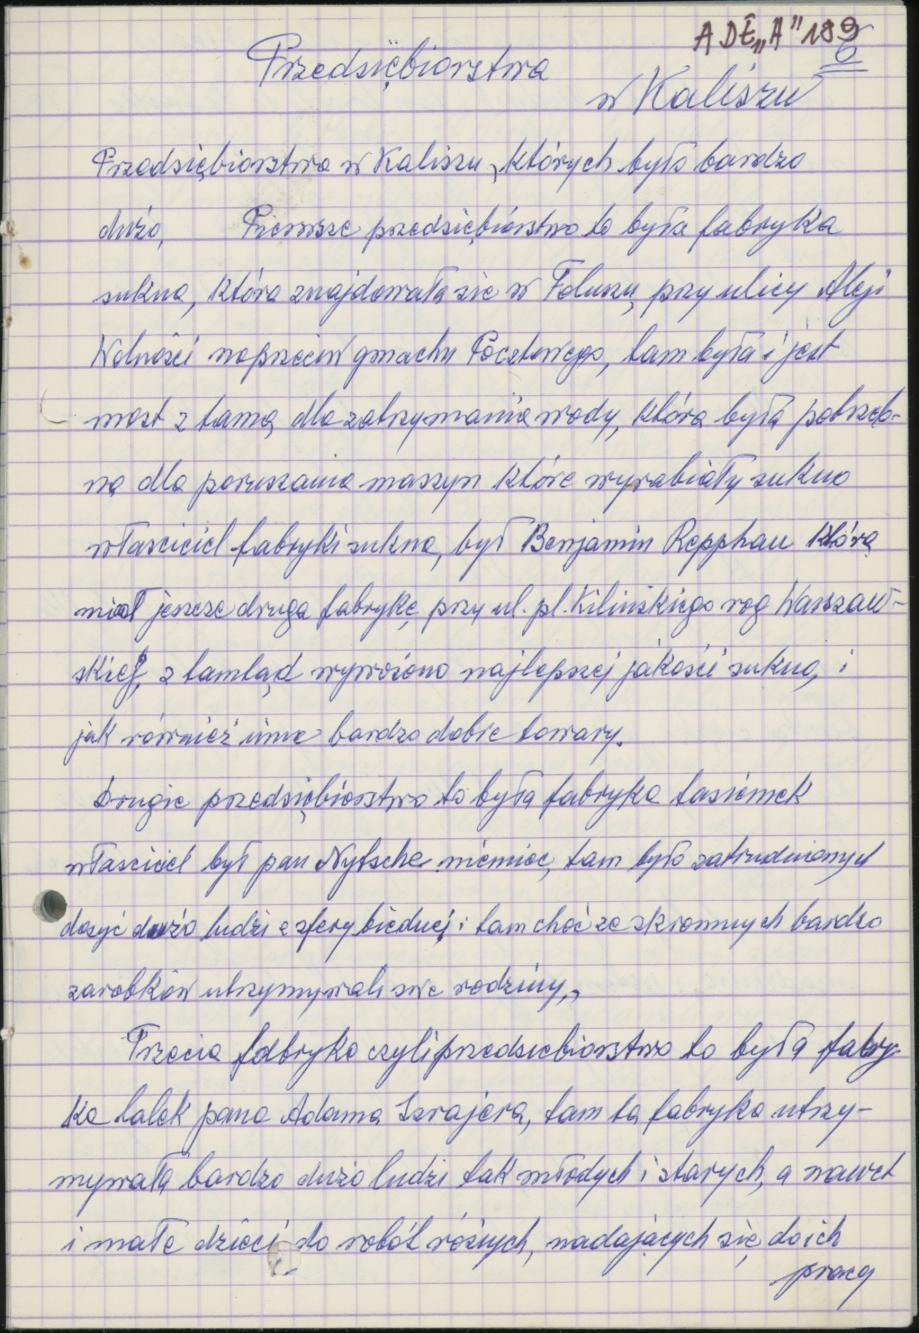 A DŁ „A” 199
6
Przedsiębiorstwa
w Kaliszu
Przedsiębiorstwa w Kaliszu, których było bardzo
dużo, Pierwsze przedsiębiorstwo to była fabryka
sukna, która znajdowała się w Foluszu, przy ulicy Aleji
Wolności naprzeciw gmachu Pocztowego, tam była i jest
most z tamą dla zatrzymania wody, która była potrzeb-
na dla poruszania maszyn które wyrabiały sukno
właściciel fabryki sukna, był Benjamin Repphau którą
miał jeszcze druga fabrykę, przy ul. pl. Kilińskiego rog Warszaw-
skiej, z tamtąd wywożono najlepszej jakości sukno, i
jak również inne bardzo dobre towary.
Drugie przedsiębiorstwo to była fabryka tasiemek
właściciel był pan Nytsche niemiec, tam było zatrudnionych
dosyć dużo ludzi z sfery biednej i tam choć ze skromnych bardzo
zarobków utrzymywali swe rodziny,,
Trzecia fabryka czyli przedsiebiorstwo to była fabry
ka lalek pana Adama Szrajera, tam ta fabryka utrzy-
mywała bardzo dużo ludzi tak młodych i starych, a nawet
i małe dzieci do robót różnych, nadających się do ich
pracy